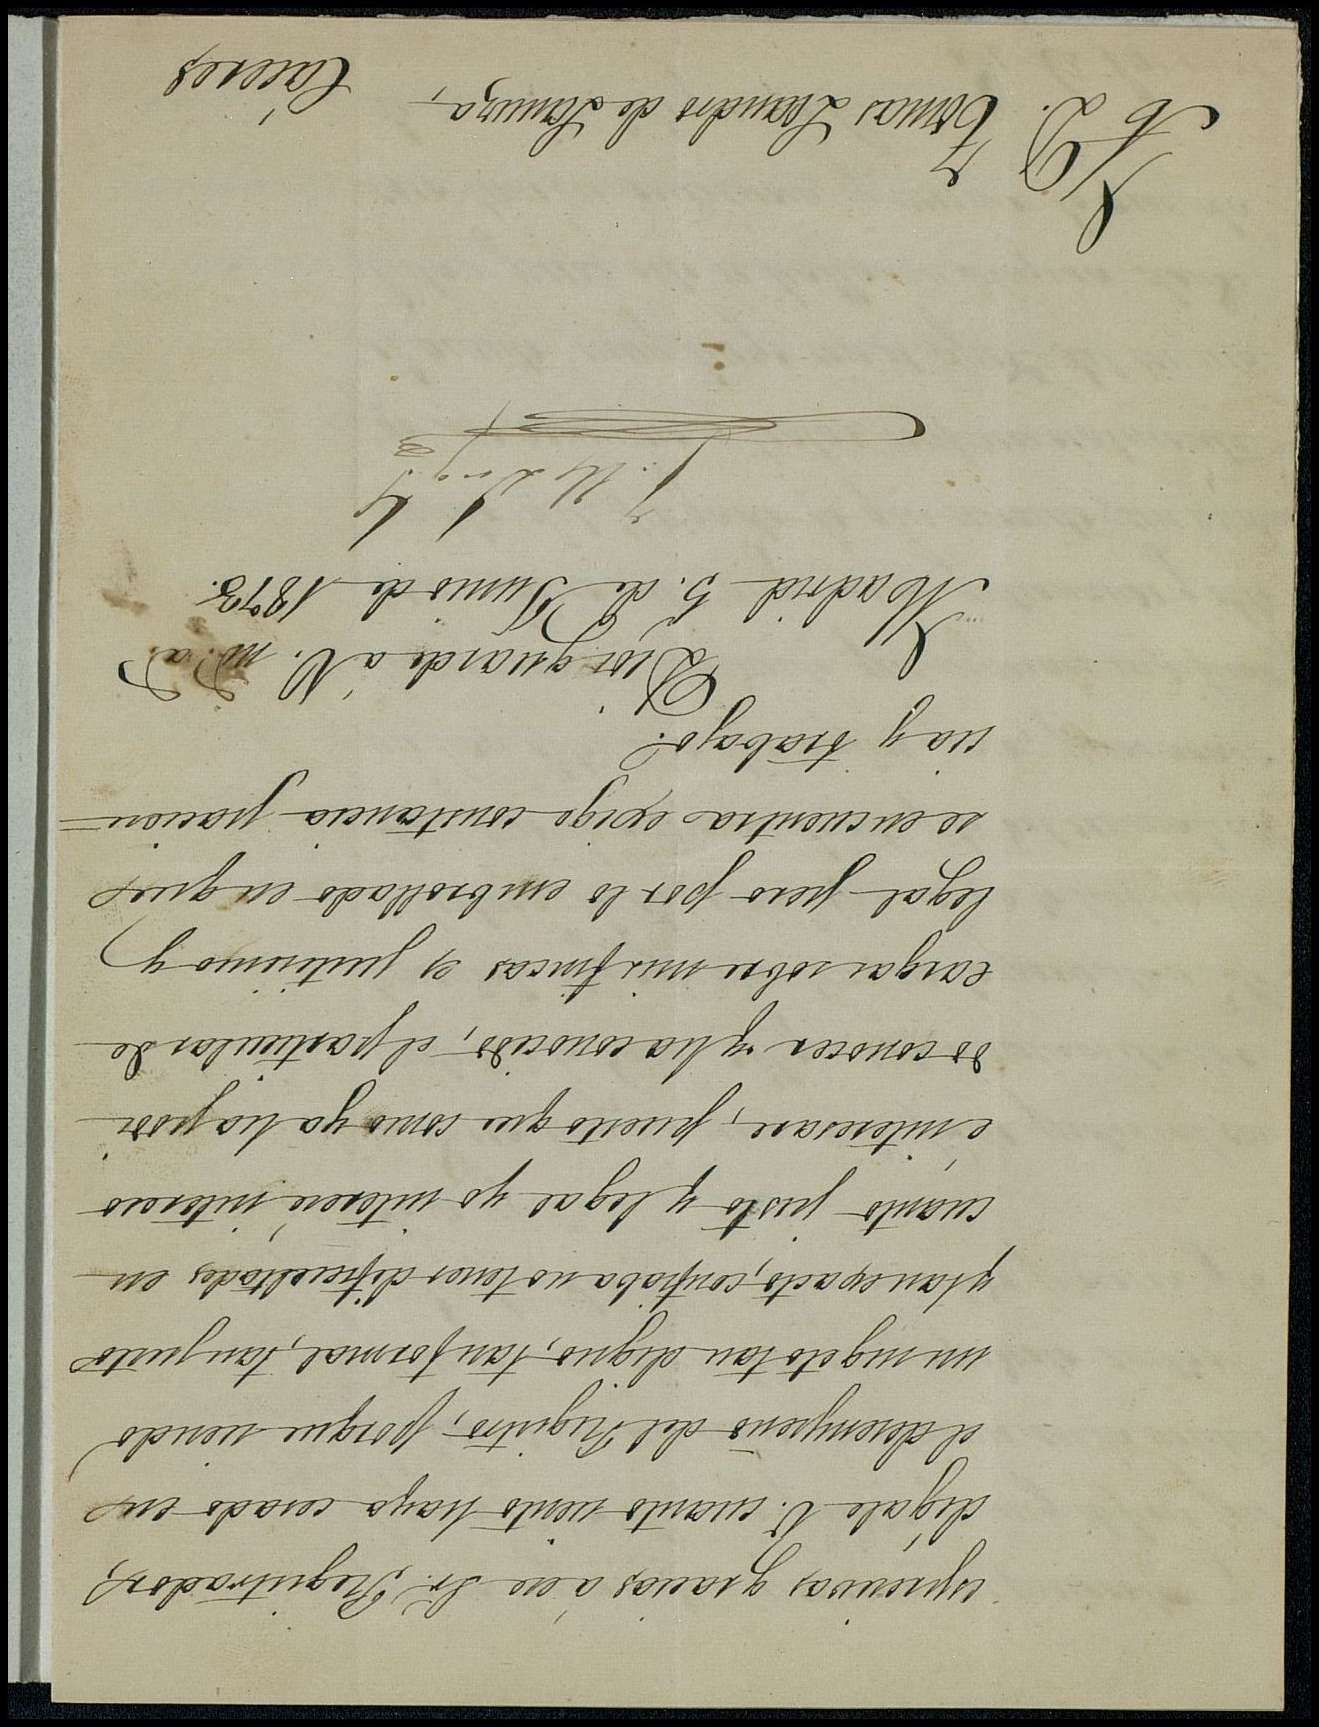 espresivas gracias á ese Sr. Registrador,
dígale V. cuanto siento haya cesado en
el desempeño del Registro, porque siendo
un sugeto tan digno, tan formal, tan justo
y tan exacto, confiaba no tener dificultades en
cuanto justo y legal yo interesé, intereso
é interesare, puesto que como ya ha podi
do conocer y ha conocido, el particular de
cargas sobre mis fincas es justisimo y
legal pero por lo embrollado en que
se encuentra exige constancia pacien=
cia y trabajo.
Dios guarde á V. m.s a.s
Madrid 5. de Junio de 1878.
S.r D.
D. Tomas Leandro de Lamuza,
Cáceres